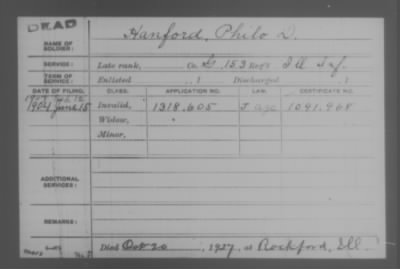 DEAD
NAME OF SOLDIER: Hanford, Philo D.
SERVICE: Late rank, Co. G. 153 Reg't Ill Inf.
TERM OF SERVICE: Enlisted , 1 Discharged , 1
DATE OF FILING. CLASS. APPLICATION NO. LAW. CERTIFICATE NO.
1904 June 15 Invalid, 1318.605 age 1091.968
Widow,
Minor,
ADDITIONAL SERVICES:
REMARKS:
Died Oct 20, 1927, at Rockford, Ill.